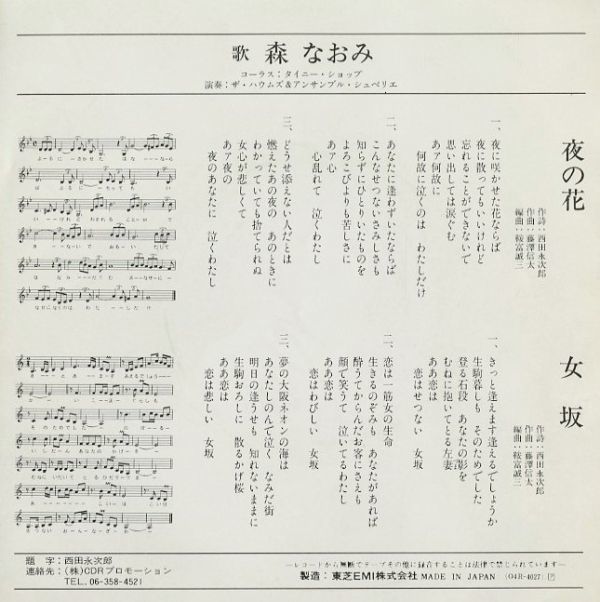 歌 森 なおみ
コーラス：タイニー・ショップ
演奏：ザ・ハウムズ&アンサンブル・シュペリエ
夜の花
作詩：西田永次郎
作曲：藤澤信太
編曲：鞍富誠三
一、夜に咲かせた花ならば
夜に散ってもいいけれど
忘れることができないで
思い出しては涙ぐむ
あァ何故に
何故に泣くのは わたしだけ
二、あなたに逢わずいたならば
こんなせつないさみしさも
知らずにひとりいたものを
よろこびよりも苦しさに
あァ心
心乱れて 泣くわたし
三、どうせ添えない人だとは
燃えたあの夜の あのときに
わかっていても捨てられぬ
女心が悲しくて
あァ夜の
夜のあなたに 泣くわたし
女坂
作詩：西田永次郎
作曲：藤澤信太
編曲：鞍富誠三
一、きっと逢えますね逢えるでしょうか
生駒暮しも そのためでした
登る石段 あなたの影を
むねに抱いてとる左妻
ああ恋は
恋はせつない 女坂
二、恋は一筋女の生命
生きるのぞみも あなたがあれば
酔うてからんだお客にさえも
顔で笑うて 泣いてるわたし
ああ恋は
恋はわびしい 女坂
三、夢の大阪ネオンの海は
あなたしのんで泣く なみだ街
明日の逢うせも 知れないままに
生駒おろしに 散るかげ桜
ああ恋は
恋は悲しい 女坂
題 字：西田永次郎
連絡先：(株)CDRプロモーション
TEL. 06-358-4521
―レコードから無断でテープその他に録音することは法律で禁じられています―
製造：東芝EMI株式会社 MADE IN JAPAN (04R-4027) Ⓟ